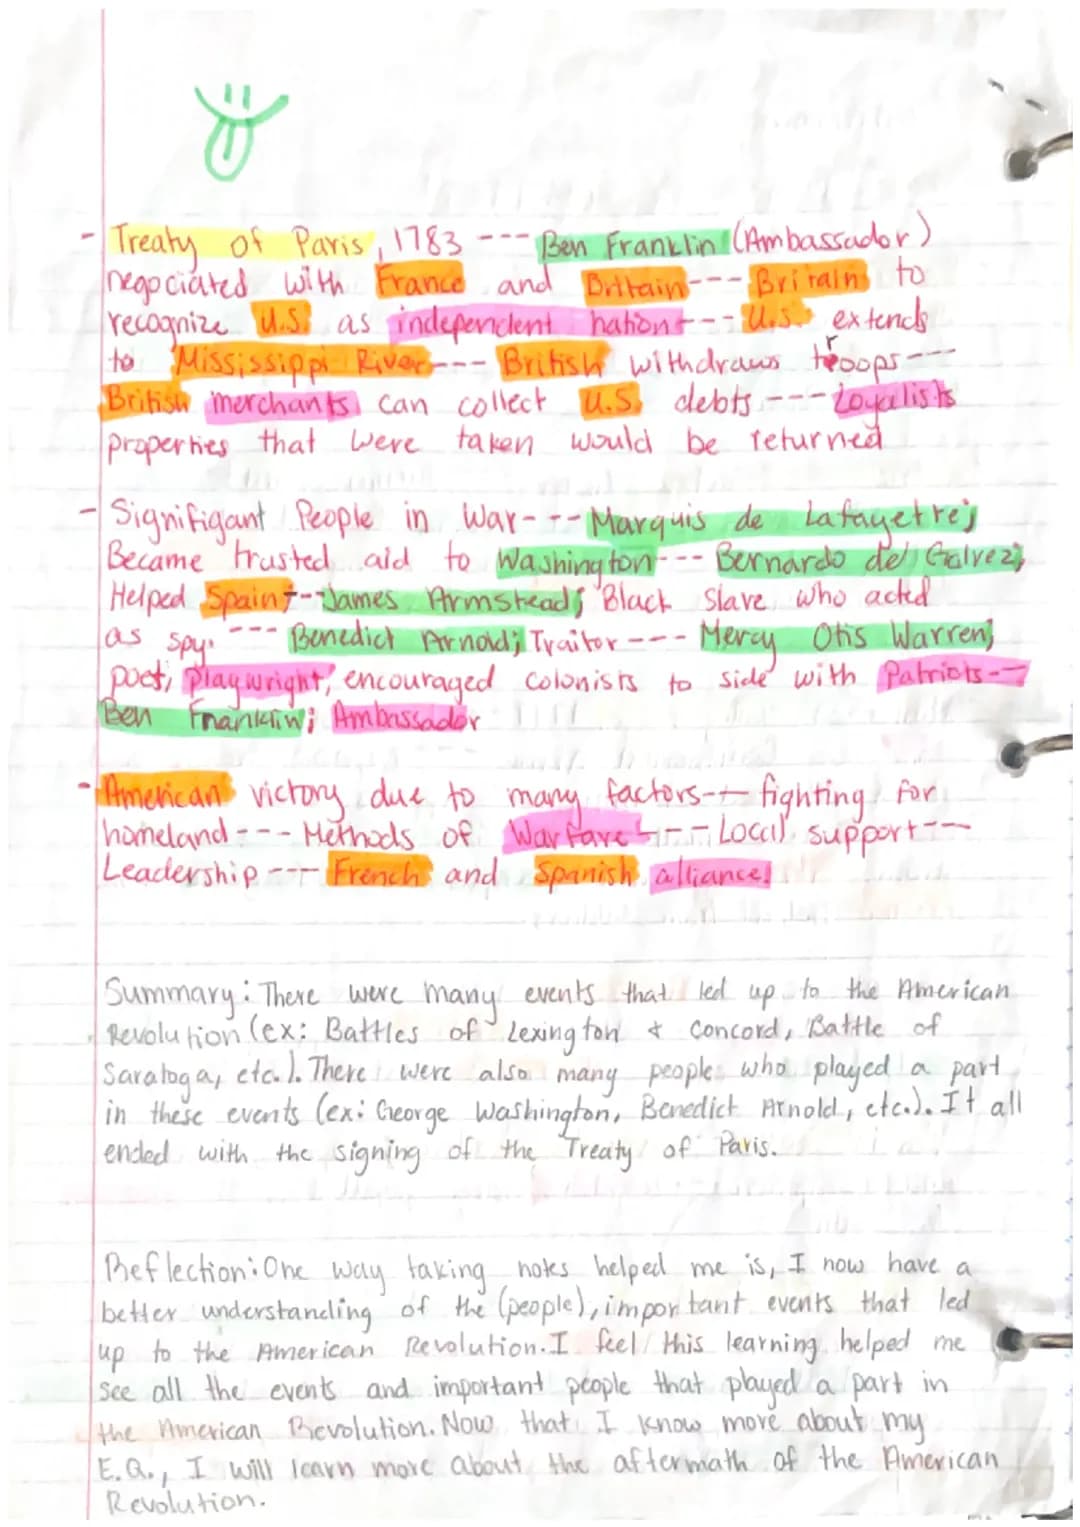 - Treaty of Paris, 1783 --- Ben Franklin (Ambassador)
negociated with France and Britain --- Britain to
recognize U.S. as independent nation --- U.S. extends
to Mississippi River --- British withdraws troops ---
British merchants can collect U.S. debts --- Loyalists
properties that were taken would be returned
- Signifigant People in War --- Marquis de Lafayette;
Became trusted aid to Washington --- Bernardo de Galvez;
Helped Spain --- James Armstead; Black slave who acted
as spy. --- Benedict Arnold; Traitor --- Mercy Otis Warren;
poet, playwright, encouraged colonists to side with Patriots --
Ben Franklin; Ambassador
- American victory due to many factors -- fighting for
homeland --- Methods of Warfare --- Local support ---
Leadership --- French and Spanish alliance!
Summary: There were many events that led up to the American
Revolution (ex: Battles of Lexington & Concord, Battle of
Saratoga, etc.). There were also many people who played a part
in these events (ex: George Washington, Benedict Arnold, etc.). It all
ended with the signing of the Treaty of Paris.
Reflection: One way taking notes helped me is, I now have a
better understanding of the (people), important events that led
up to the American Revolution. I feel this learning helped me
see all the events and important people that played a part in
the American Revolution. Now that I know more about my
E.Q., I will learn more about the aftermath of the American
Revolution.